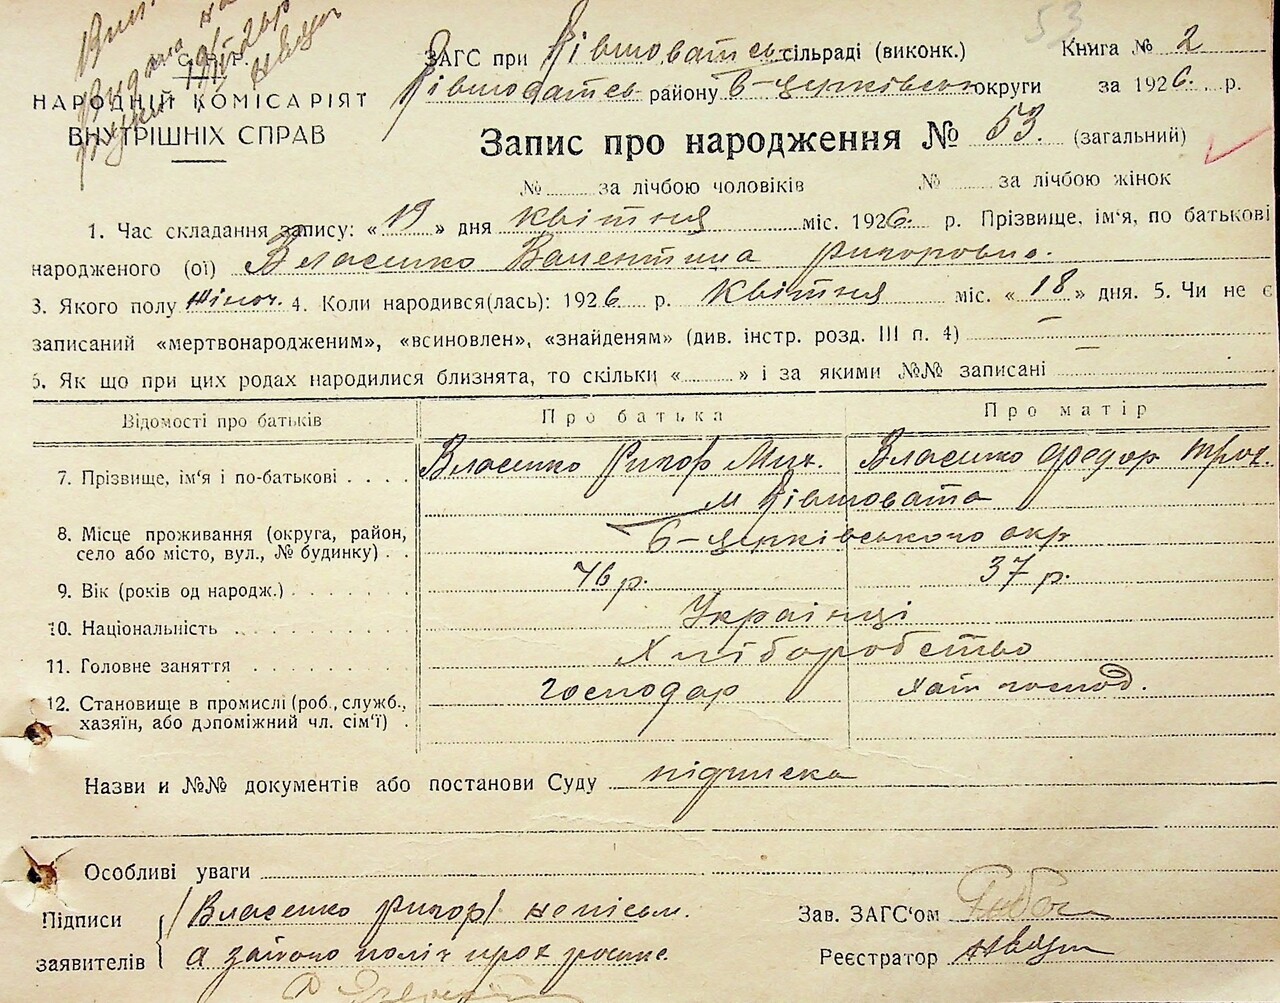 53
ЗАГС при Рівшоватсь сільраді (виконк.) Книга № 2
У. С. Р. Р.
Рівшоватсь району Б-церківськ округи за 1926. р.
НАРОДНІЙ КОМІСАРІЯТ
ВНУТРІШНІХ СПРАВ
Запис про народження № 53. (загальний)
№ за лічбою чоловіків № за лічбою жінок
1. Час складання запису: «19» дня квітня міс. 1926. р. Прізвище, ім'я, по батькові
народженого (ої) Власенко Валентина Ригоровна.
3. Якого полу жіноч. 4. Коли народився(лась): 1926 р. Квітня міс. «18» дня. 5. Чи не є
записаний «мертвонародженим», «всиновлен», «знайденям» (див. інстр. розд. III п. 4) —
6. Як що при цих родах народилися близнята, то скільки « » і за якими №№ записані —
Відомості про батьків Про батька Про матір
7. Прізвище, ім'я і по-батькові Власенко Ригор Мих. Власенко Федор Трох.
м Рівшовата
8. Місце проживання (округа, район, село або місто, вул., № будинку) Б-церківського окр
9. Вік (років од народж.) 46 р. 37 р.
10. Національність Українці
11. Головне заняття Хліборобство
12. Становище в промислі (роб., служб., хазяїн, або допоміжний чл. сім'ї) господар хатн господ.
Назви и №№ документів або постанови Суду підписка
Особливі уваги
Підписи /Власенко Ригор/ неписьм.
заявителів а за його
Зав. ЗАГС'ом
Реєстратор